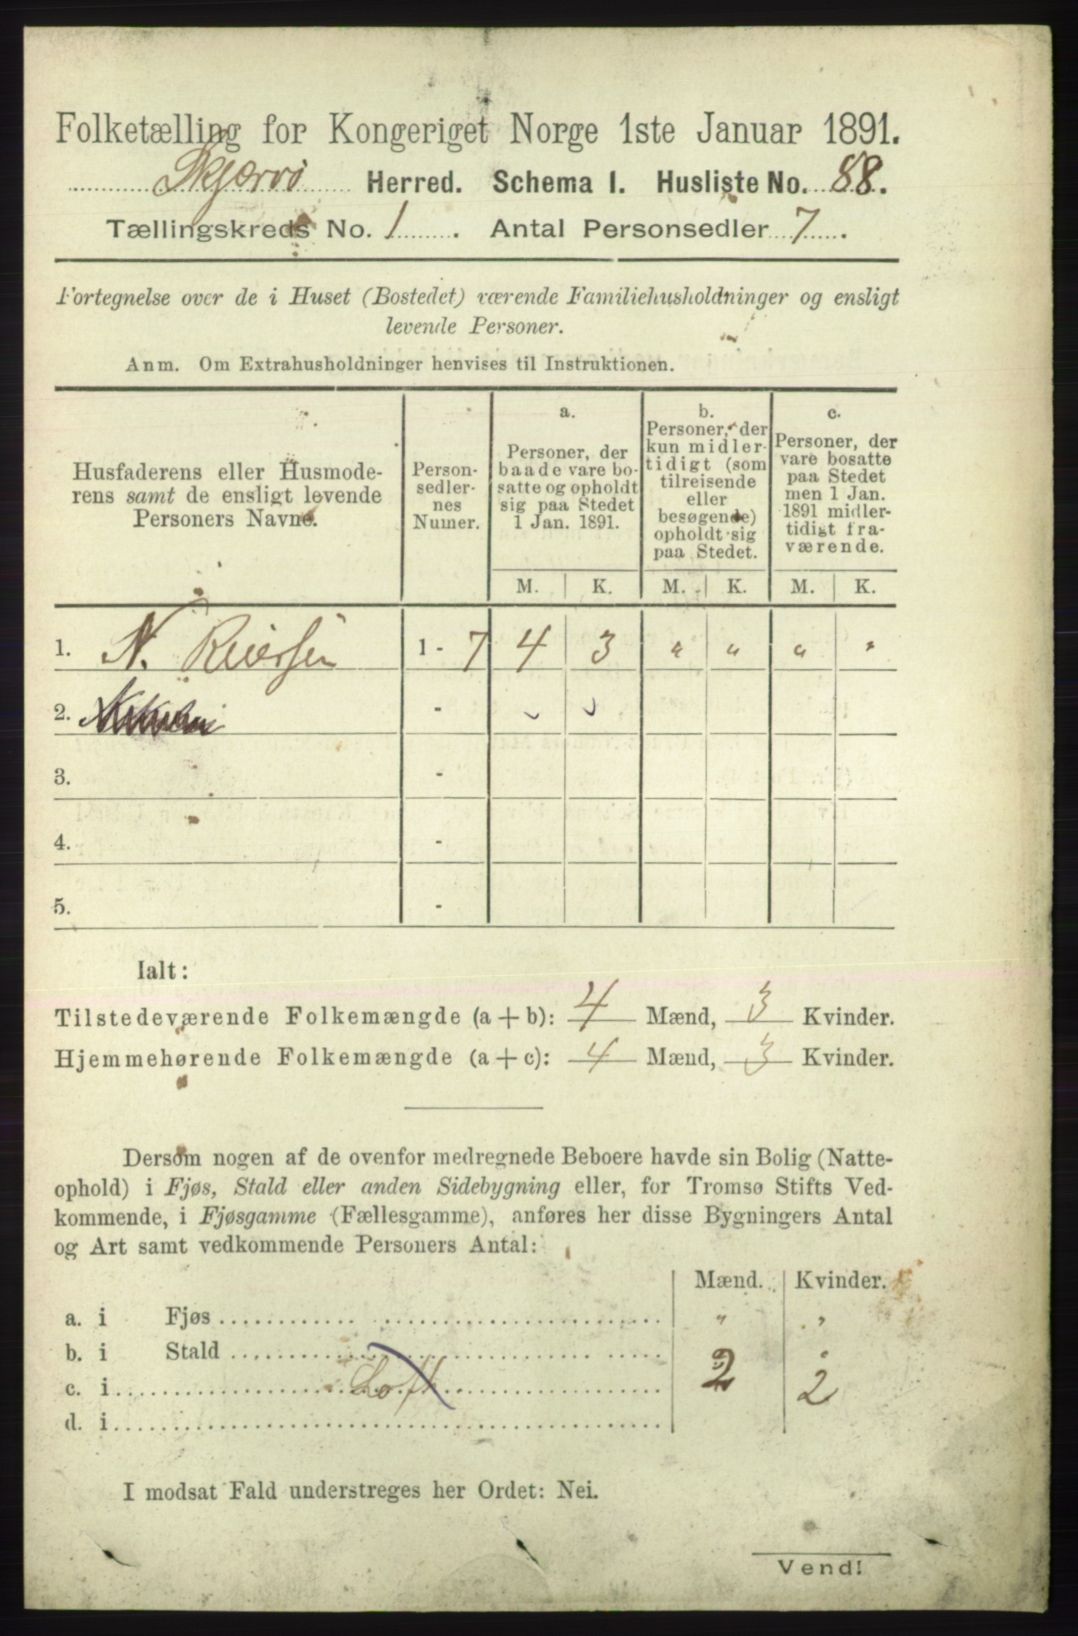 Folketælling for Kongeriget Norge 1ste Januar 1891.
Skjærvø Herred. Schema I. Husliste No. 88.
Tællingskreds No. 1. Antal Personsedler 7.
Fortegnelse over de i Huset (Bostedet) værende Familiehusholdninger og ensligt
levende Personer.
Anm. Om Extrahusholdninger henvises til Instruktionen.
Husfaderens eller Husmode-
rens samt de ensligt levende
Personers Navne.
Person-
sedler-
nes
Numer.
a.
Personer, der
baade vare bo-
satte og opholdt
sig paa Stedet
1 Jan. 1891.
b.
Personer, der
kun midler-
tidigt (som
tilreisende
eller
besøgende)
opholdt sig
paa Stedet.
c.
Personer, der
vare bosatte
paa Stedet
men 1 Jan.
1891 midler-
tidigt fra-
værende.
M. K. M. K. M. K.
1. N. Reiersen 1 - 7 4 3 " " " "
2. -
3. -
4. -
5. -
Ialt:
Tilstedeværende Folkemængde (a + b): 4 Mænd, 3 Kvinder.
Hjemmehørende Folkemængde (a + c): 4 Mænd, 3 Kvinder.
Dersom nogen af de ovenfor medregnede Beboere havde sin Bolig (Natte-
ophold) i Fjøs, Stald eller anden Sidebygning eller, for Tromsø Stifts Ved-
kommende, i Fjøsgamme (Fællesgamme), anføres her disse Bygningers Antal
og Art samt vedkommende Personers Antal:
Mænd. Kvinder.
a. i Fjøs " "
b. i Stald
c. i Loft 2 2
d. i
I modsat Fald understreges her Ordet: Nei.
Vend!